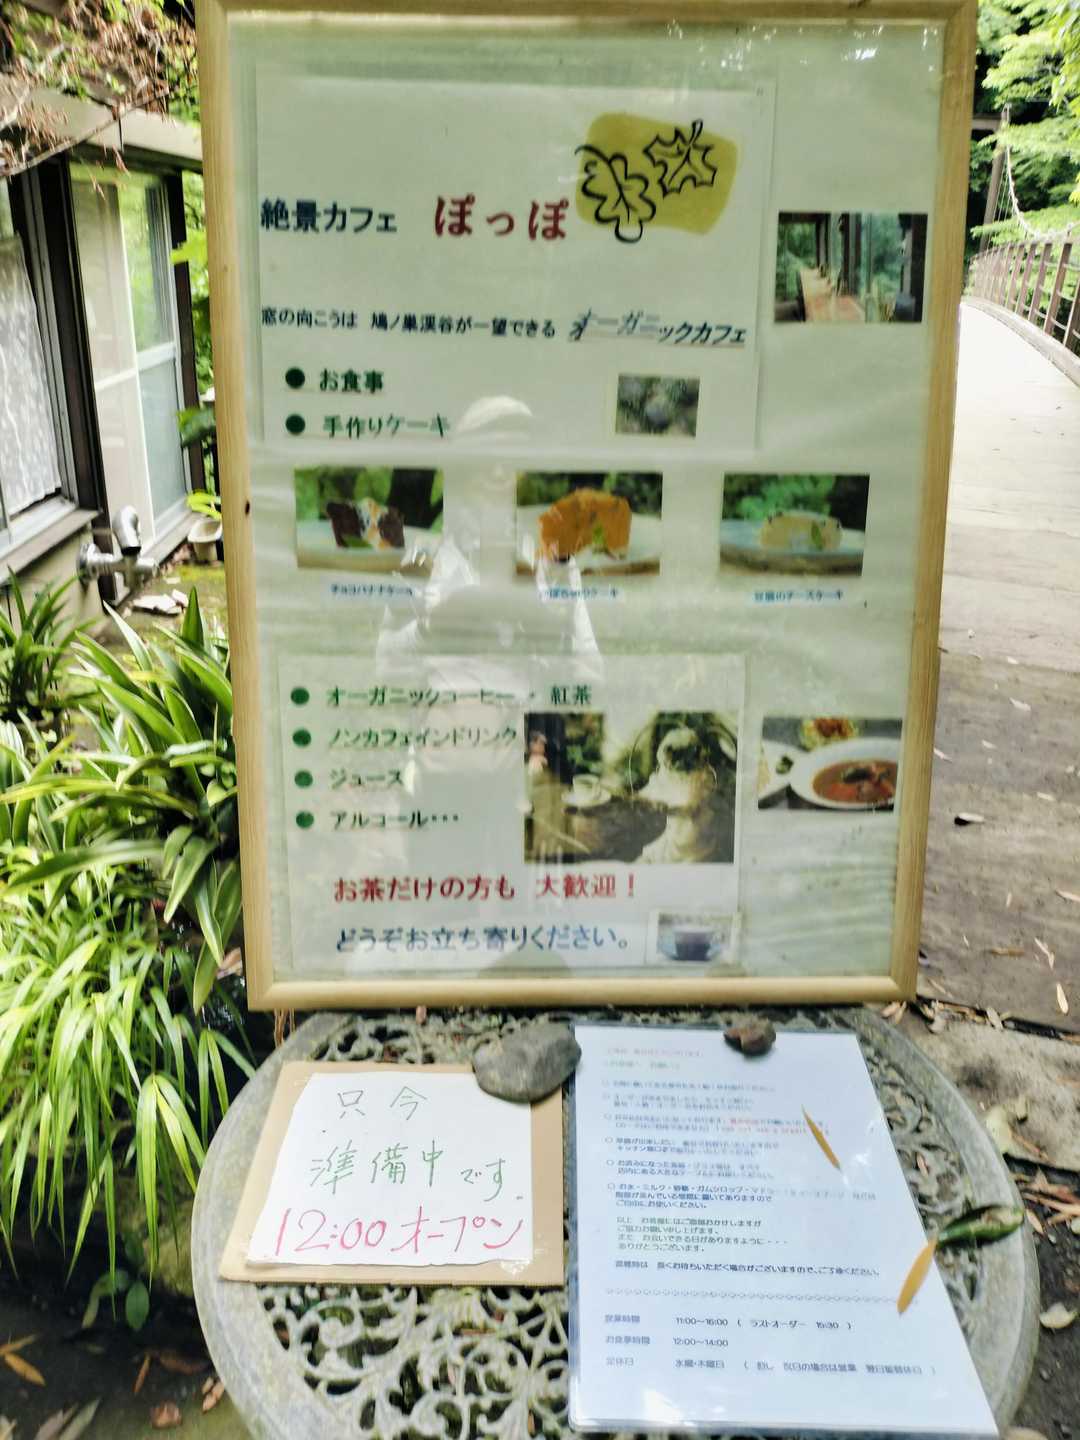 絶景カフェ ぽっぽ
窓の向こうは 鳩ノ巣渓谷が一望できる オーガニックカフェ
● お食事
● 手作りケーキ
チョコバナナケーキ
かぼちゃのケーキ
豆腐のチーズケーキ
● オーガニックコーヒー・紅茶
● ノンカフェインドリンク
● ジュース
● アルコール・・・
お茶だけの方も 大歓迎！
どうぞお立ち寄りください。
只今
準備中です。
12:00オープン
○ お済みになった食器・グラス等は
○ お水・ミルク・砂糖・ガムシロップ・マドラー
ご自由にお使いください。
以上 お客様にはご面倒おかけしますが
ご協力お願い申し上げます。
また お会いできる日がありますように・・・
ありがとうございます。
混雑時は 長くお待ちいただく場合がございますので、ご了承ください。
営業時間 11:00～16:00 ( ラストオーダー 15:30 )
お食事時間 12:00～14:00
定休日 水曜・木曜日 ( 但し 祝日の場合は営業 翌日振替休日 )